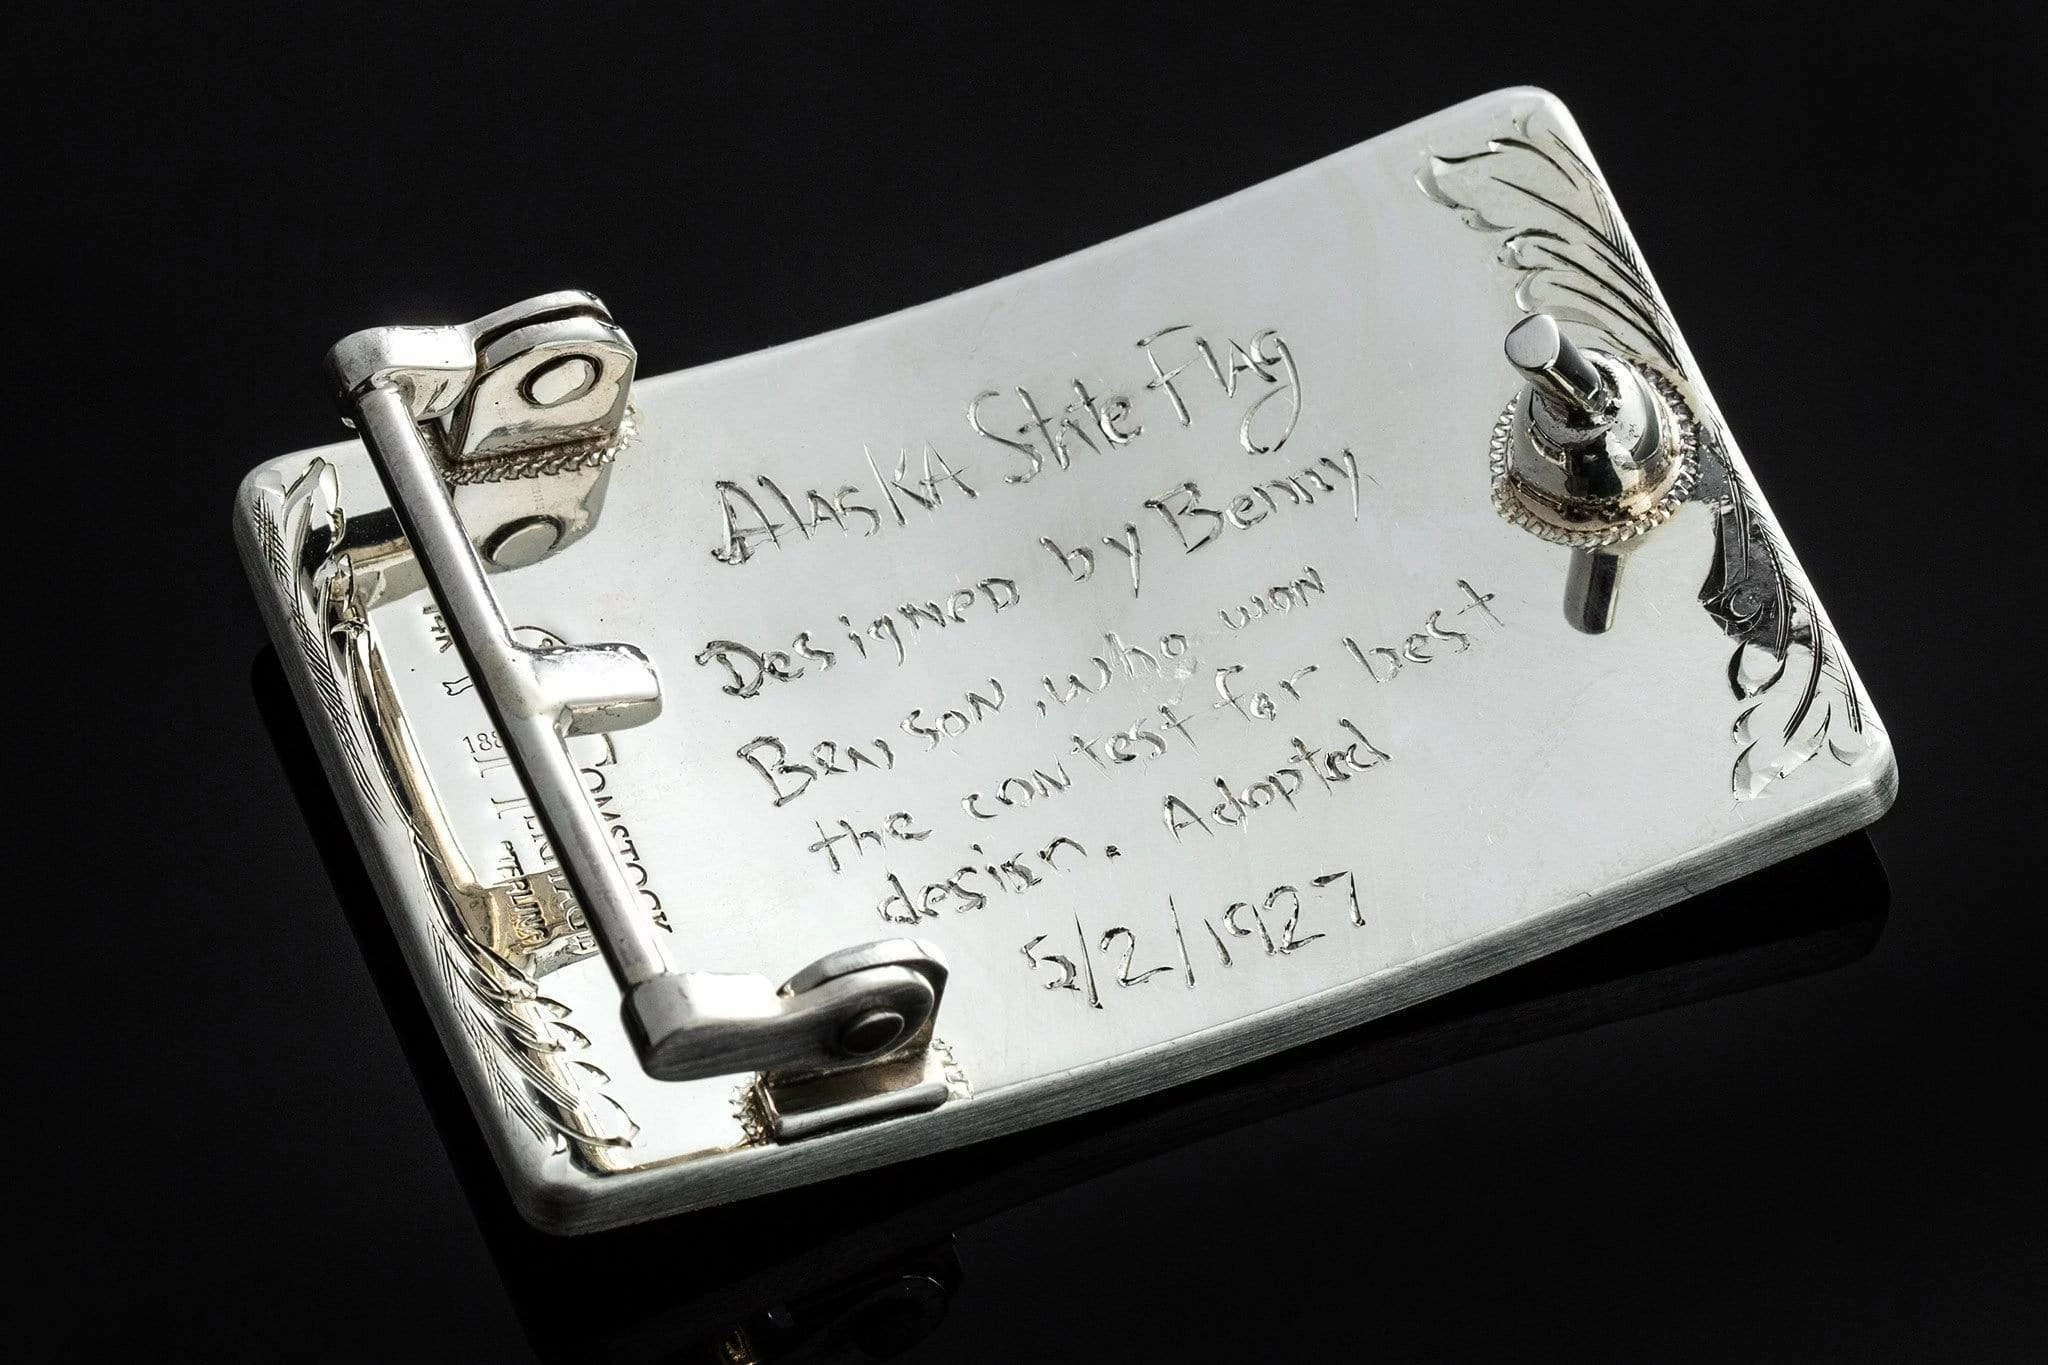 Alaska State Flag
Designed by Benny
Benson, who won
the contest for best
design. Adopted
5/2/1927
14K
188
COMSTOCK
STERLING